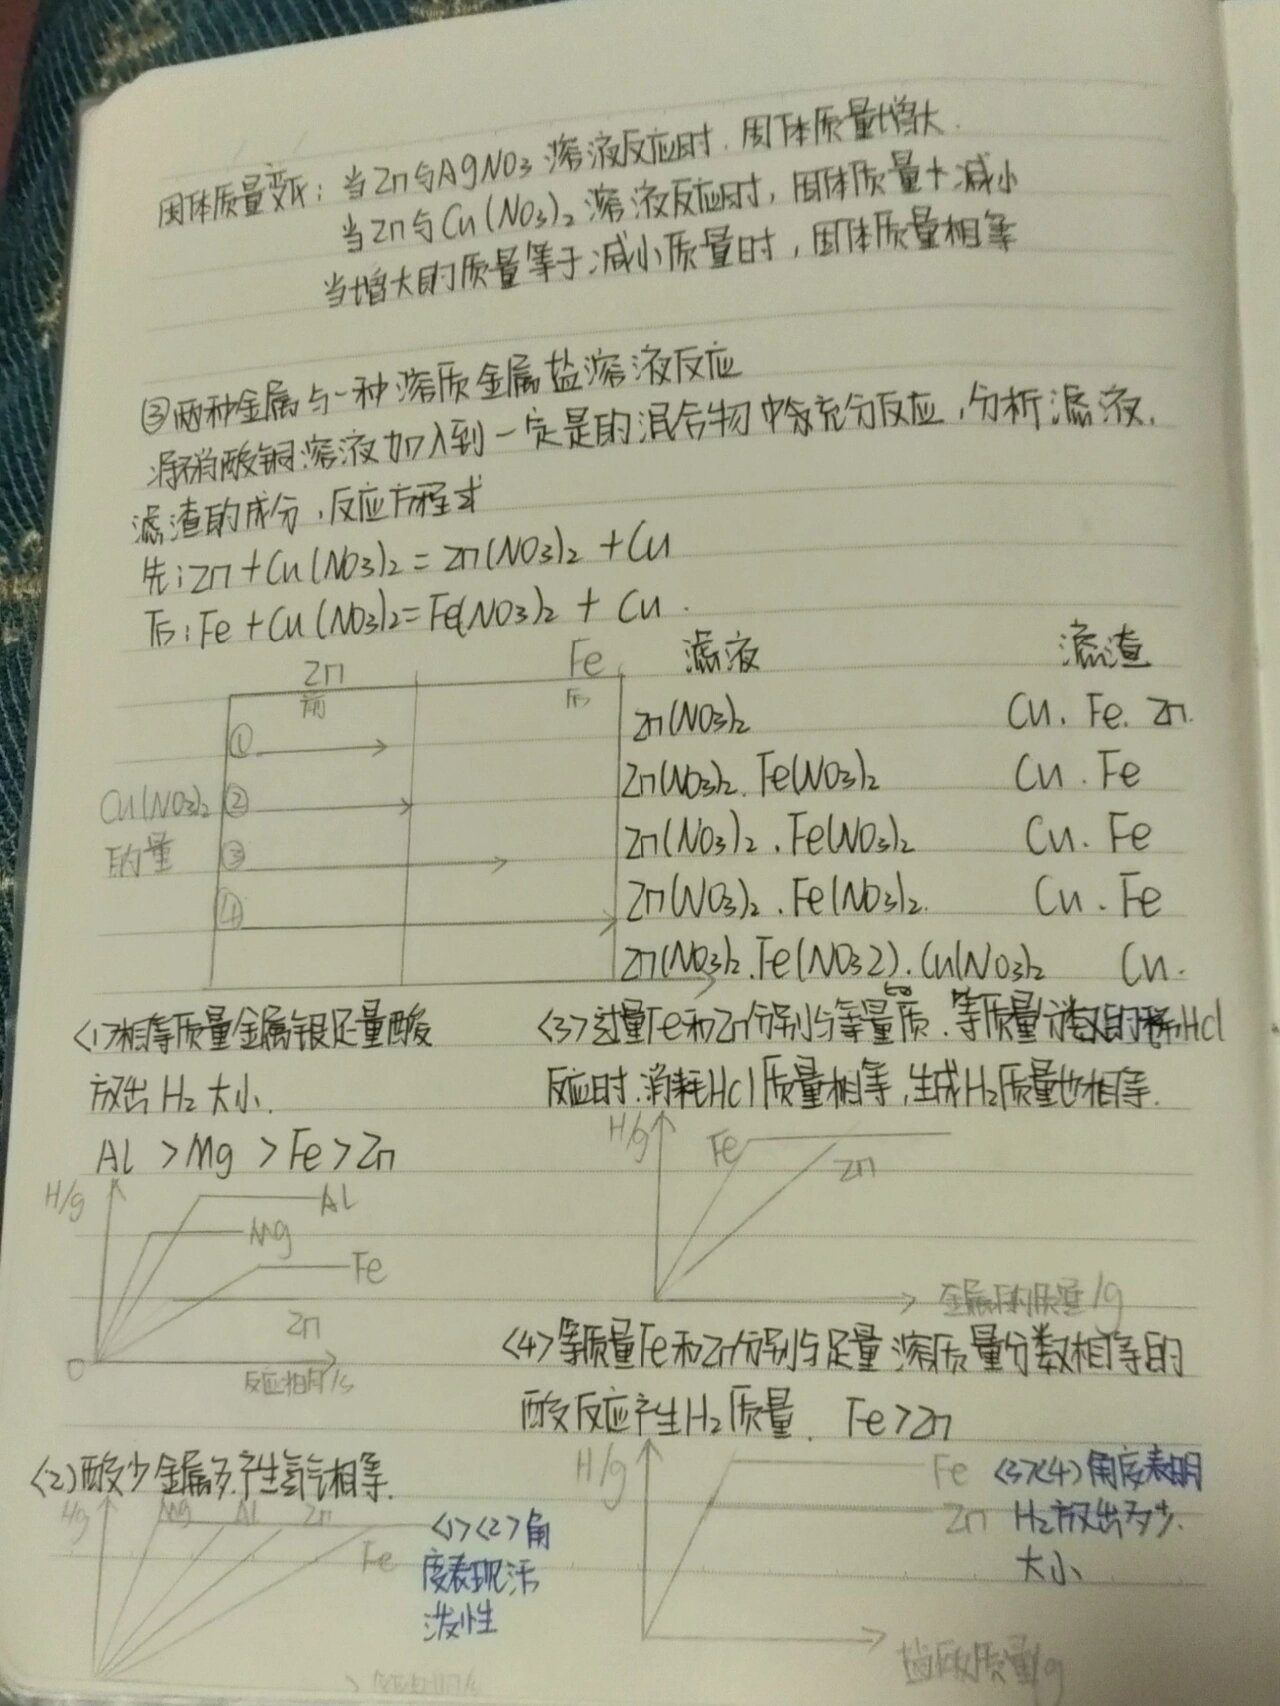 固体质量变化：当Zn与AgNO3溶液反应时．固体质量增大．
当Zn与Cu(NO3)2溶液反应时，固体质量减小
当增大的质量等于减小质量时，固体质量相等
③两种金属与一种溶质金属盐溶液反应
将硝酸铜溶液加入到一定是的混合物中充分反应，分析滤液．
滤渣的成分，反应方程式
先：Zn+Cu(NO3)2=Zn(NO3)2+Cu
后：Fe+Cu(NO3)2=Fe(NO3)2+Cu．
Zn Fe 滤液 滤渣
前 后
Zn(NO3)2 Cu．Fe．Zn．
①
Zn(NO3)2．Fe(NO3)2 Cu．Fe
Cu(NO3)2 ②
Zn(NO3)2．Fe(NO3)2 Cu．Fe
的量 ③
Zn(NO3)2．Fe(NO3)2． Cu．Fe
④
Zn(NO3)2．Fe(NO32)．Cu(NO3)2 Cu．
<1>相等质量金属银足量酸
放出H2大小．
Al>Mg>Fe>Zn
H/g
Al
Mg
Fe
Zn
O
<3>过量Fe和Zn分别与等量质．等质量分数的稀HCl
反应时．消耗HCl质量相等，生成H2质量也相等．
H/g
Fe
Zn
金属的质量/g
<2>酸少金属多．产生氢气相等．
H/g Mg Al Zn
Fe
<1><2>角
度表现活
泼性
<4>等质量Fe和Zn分别与足量溶质质量分数相等的
酸反应产生H2质量．Fe>Zn
H/g
Fe
Zn
<3><4>角度表明
H2放出多少．
大小
盐酸质量/g